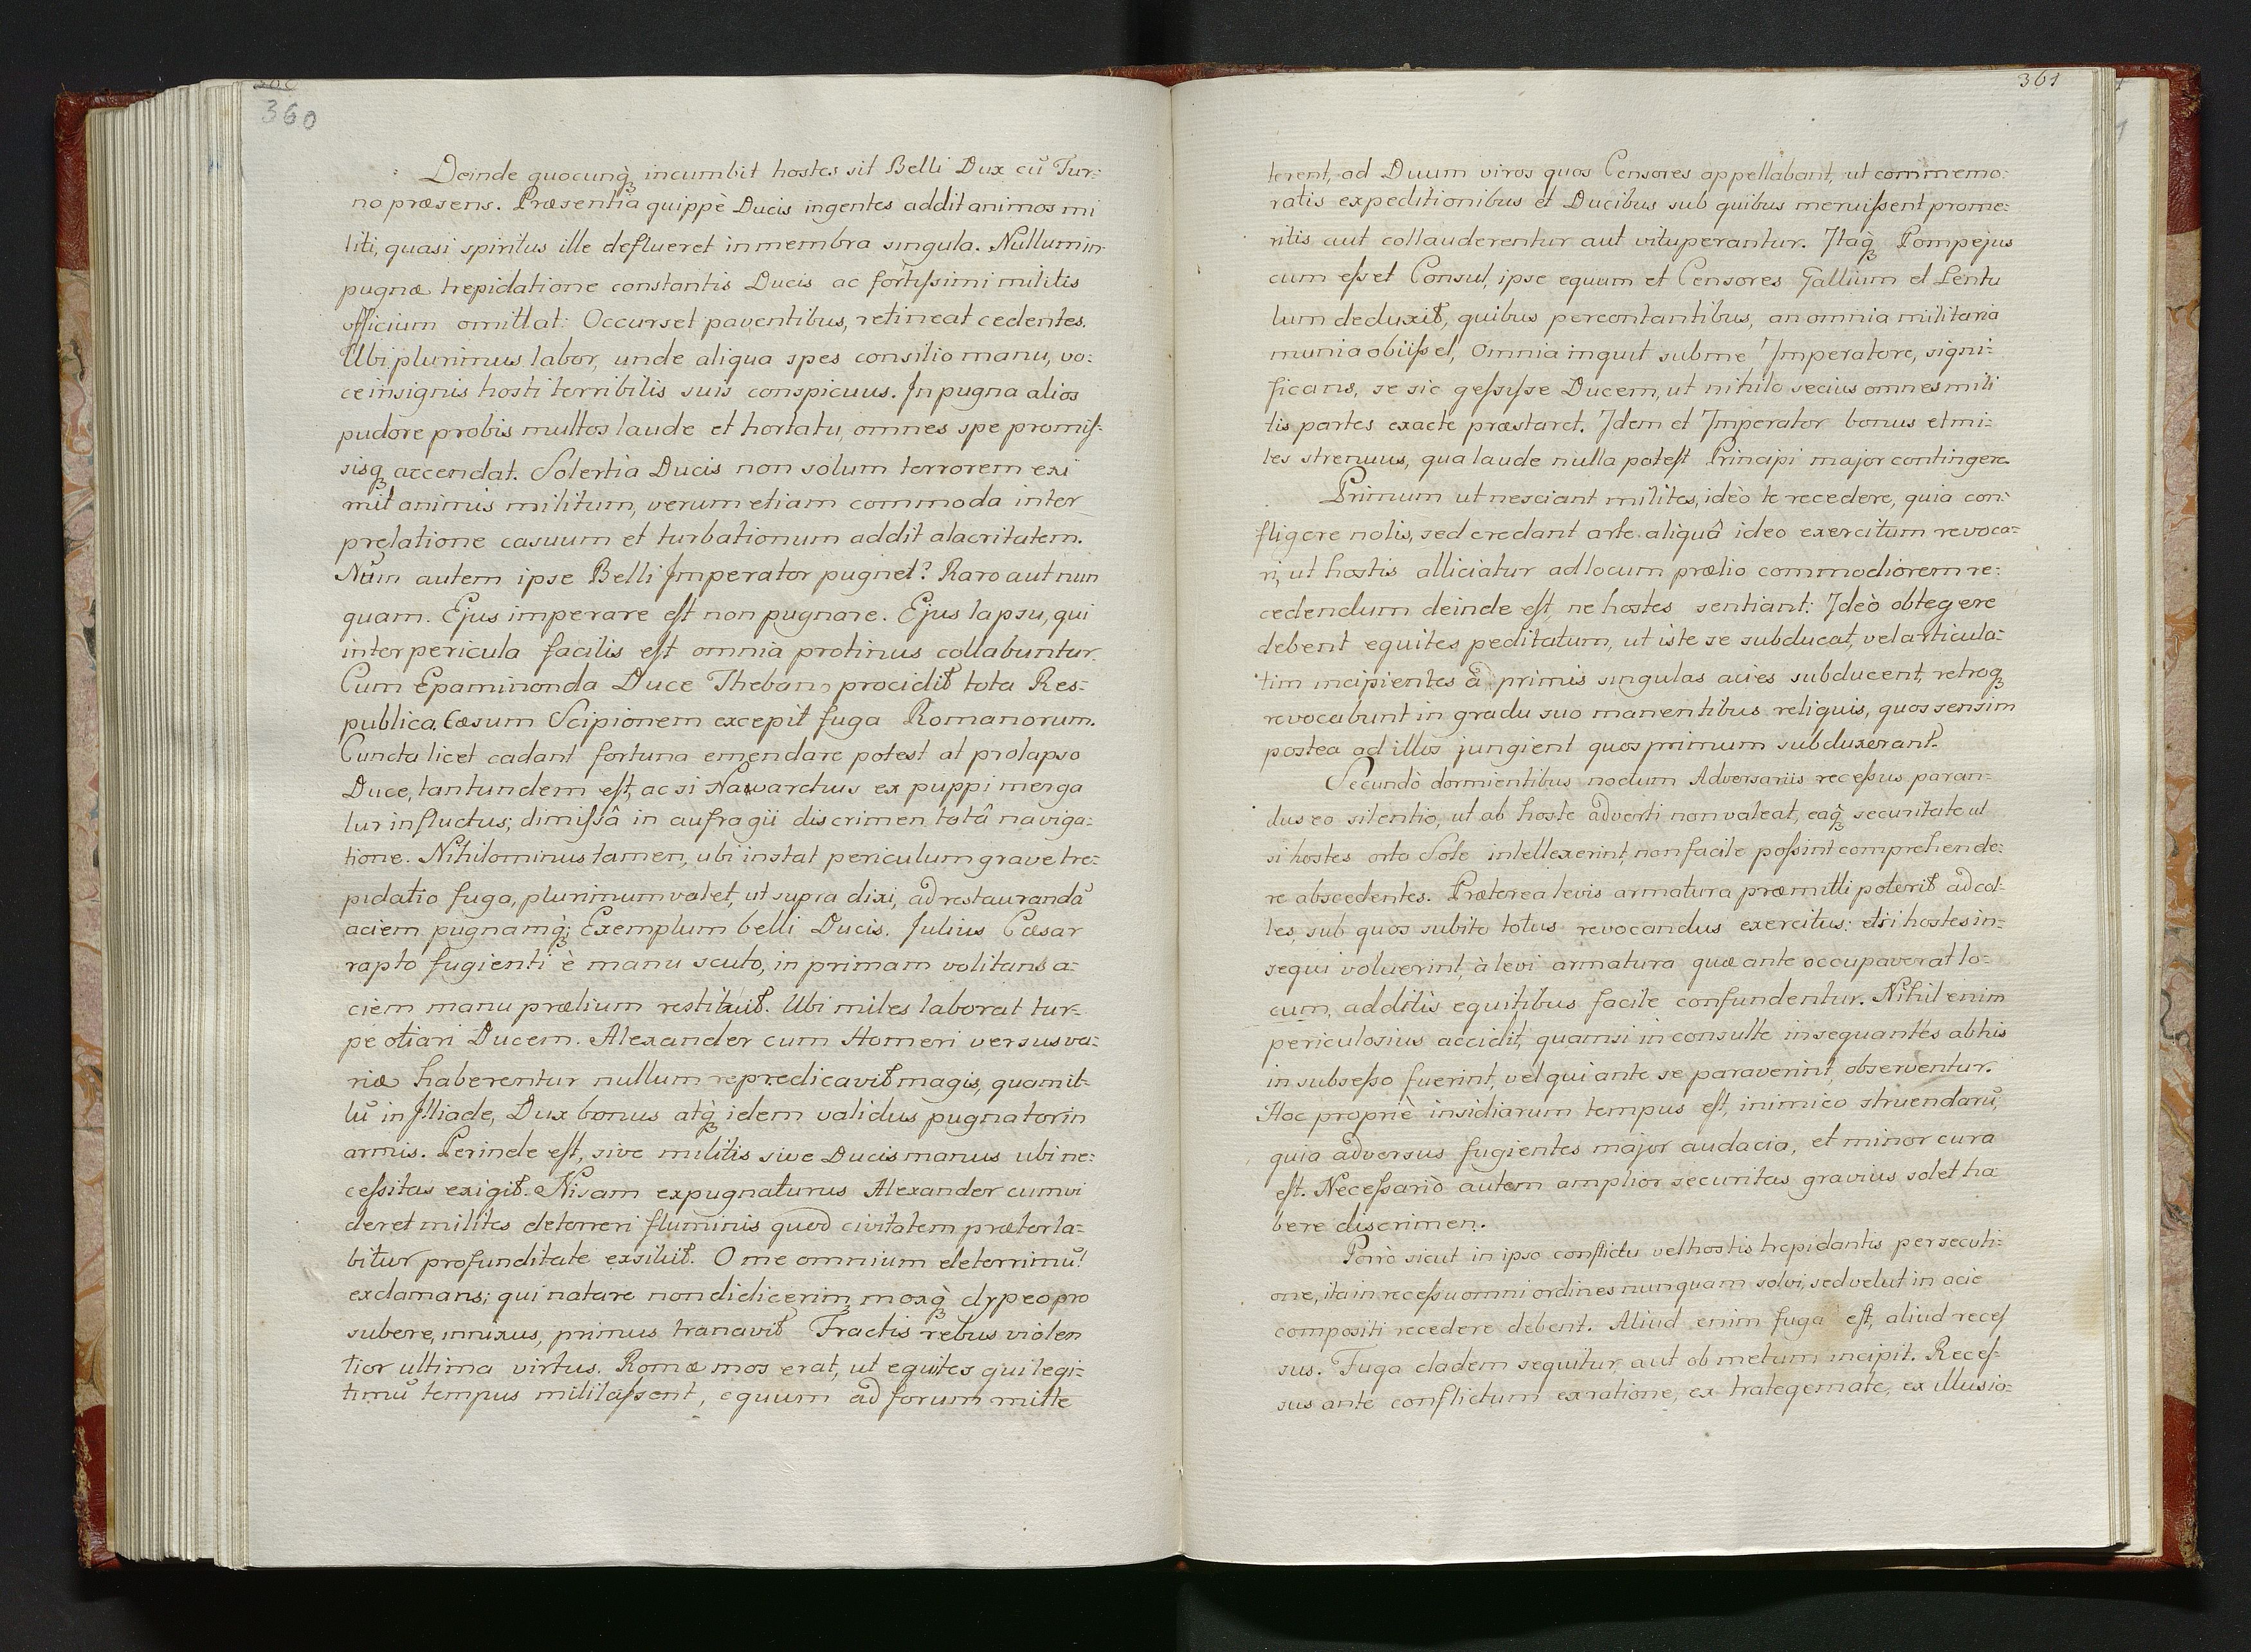 360
Deinde quocunq̀ꝫ incumbit hostes sit Belli Dux cũ Tur:
no præsens. Præsentia quippè Ducis ingentes addit animos mi
liti, quasi spiritus ille deflueret in membra singula. Nullum in
pugnæ trepidatione constantis Ducis ac fortiſsimi militis
officium omittat: Occurset paventibus, retineat cedentes.
Ubi plurimus labor, unde aliqua spes consilio manu, vo:
ce insignis hosti terribilis suis conspicuus. In pugna alios
pudore probis multos laude et hortatu, omnes spe promiſ-
sisqꝫ accendat. Solertia Ducis non solum terrorem exi
mit animis militum, verum etiam commoda inter
pretatione casuum et turbationum addit alacritatem.
Num autem ipse Belli Imperator pugnet? Raro aut nun
quam. Ejus imperare eſt non pugnare. Ejus lapsu, qui
inter pericula facilis eſt omnia protinus collabuntur.
Cum Epaminonda Duce Thebano procidit tota Res-
publica. Cæsum Scipionem excepit fuga Romanorum.
Cuncta licet cadant fortuna emendare potest at prolapso
Duce, tantundem eſt, ac si Nawarchus ex puppi merga
tur in fluctus; dimiſsâ in aufragii discrimen totâ naviga:
tione. Nihilominus tamen, ubi instat periculum grave tre-
pidatio fuga, plurimum valet, ut supra dixi, ad restaurandã
aciem pugnamq̀ꝫ; Exemplum belli Ducis. Julius Cæsar
rapto fugienti è manu scuto, in primam volitans a-
ciem manu prælium restituit. Ubi miles laborat tur-
pe otiari Ducem. Alexander cum Homeri versus va:
riæ haberentur nullum repredicavit magis, quam il-
lũ in Jlliade, Dux bonus atq̀ꝫ idem validus pugnator in
armis. Perinde eſt, sive militis sive Ducis manus ubi ne:
ceſsitas exigit. Nisam expugnaturus Alexander cum vi
deret milites deterreri fluminis quod civitatem præterla-
bitur profunditate exsiluit. O me omnium deterrimũ!
exclamans; qui natare non didicerim, moxq̀ꝫ clypeo pro
subere, innixus, primus tranavit Fractis rebus violen
tior ultima virtus. Romæ mos erat, ut equites qui legi-
timũ tempus militaſsent, equum ad forum mitte
361
terent, ad Duum viros quos Censores appellabant, ut commemo:
ratis expeditionibus et Ducibus sub quibus meruiſsent prome:
ritis aut collauderentur aut vituperantur. Jtaq̀ꝫ Pompejus
cum eſset Consul, ipse equum et Censores Gallium et Lentu
lum deduxit, quibus percontantibus, an omnia militaria
munia obiiſset, omnia inquit sub me Imperatore, signi-
ficans, se sic geſsiſse Ducem, ut nihilo secius omnes mili
tis partes exacte præstaret. Jdem et Jmperator bonus et mi-
les strenuus, qua laude nulla poteſt Principi major contingere.
Primum ut nesciant milites, ideò te recedere, quia con-
fligere nolis, sed credant arte aliquâ ideo exercitum revoca-
ri, ut hostis alliciatur ad locum prælio commodiorem re:
cedendum deinde eſt, ne hostes sentiant: Jdeò obtegere
debent equites peditatum, ut iste se subducat, vel articula-
tim incipientes â primis singulas acies subducent, retroqꝫ
revocabunt in gradu suo manentibus reliquis, quos sensim
postea ad illos jungient quos primum subduxerant.
Secundò dormientibus noctum Adversariis receſsus paran-
dus eo silentio, ut ab hoste adverti non valeat, eaq̀ꝫ securitate ut
si hostes orto Sole intellexerint, non facile poſsint comprehende:
re abscedentes. Præterea levis armatura præmitti poterit ad col-
les, sub quos subito totus revocandus exercitus: etsi hostes in-
sequi voluerint, à levi armatura quæ ante occupaverat lo-
cum, additis equitibus facile confundentur. Nihil enim
periculosius accidit, quam si in consulte insequantes ab his
in subseſso fuerint, vel qui ante se paraverint, observentur.
Hoc propriè insidiarum tempus eſt, inimico struendarũ,
quia adversus fugientes major audacia, et minor cura
eſt. Neceſsariò autem amplior securitas gravius solet ha
bere discrimen.
Porrò sicut in ipso conflictu vel hostis trepidantis persecuti-
one, ita in receſsu omni ordines nunquam solvi, sed velut in acie
compositi recedere debent. Aliud enim fuga eſt, aliud receſ
sus. Fuga cladem sequitur aut ob metum incipit. Receſ-
sus ante conflictum ex ratione, ex trategemate, ex illusio-